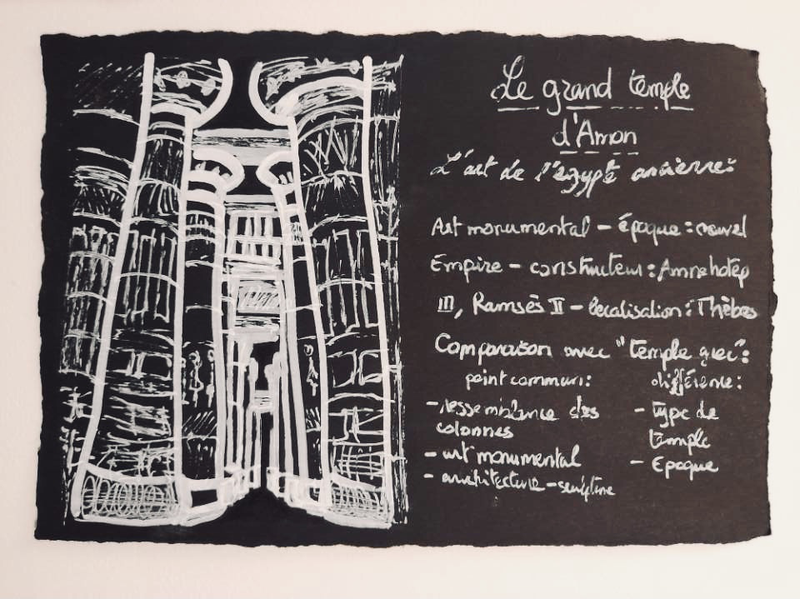 Le grand temple
d'Amon
L'art de l'egypt ancienne:
Art monumental - époque : nouvel
Empire - constructeur : Amnehotép
III, Ramsès II - localisation : Thèbes
Comparaison avec "temple grec":
point commun: différence:
- ressemblance des - type de
colonnes temple
- art monumental - Epoque
- architecture - sculpture